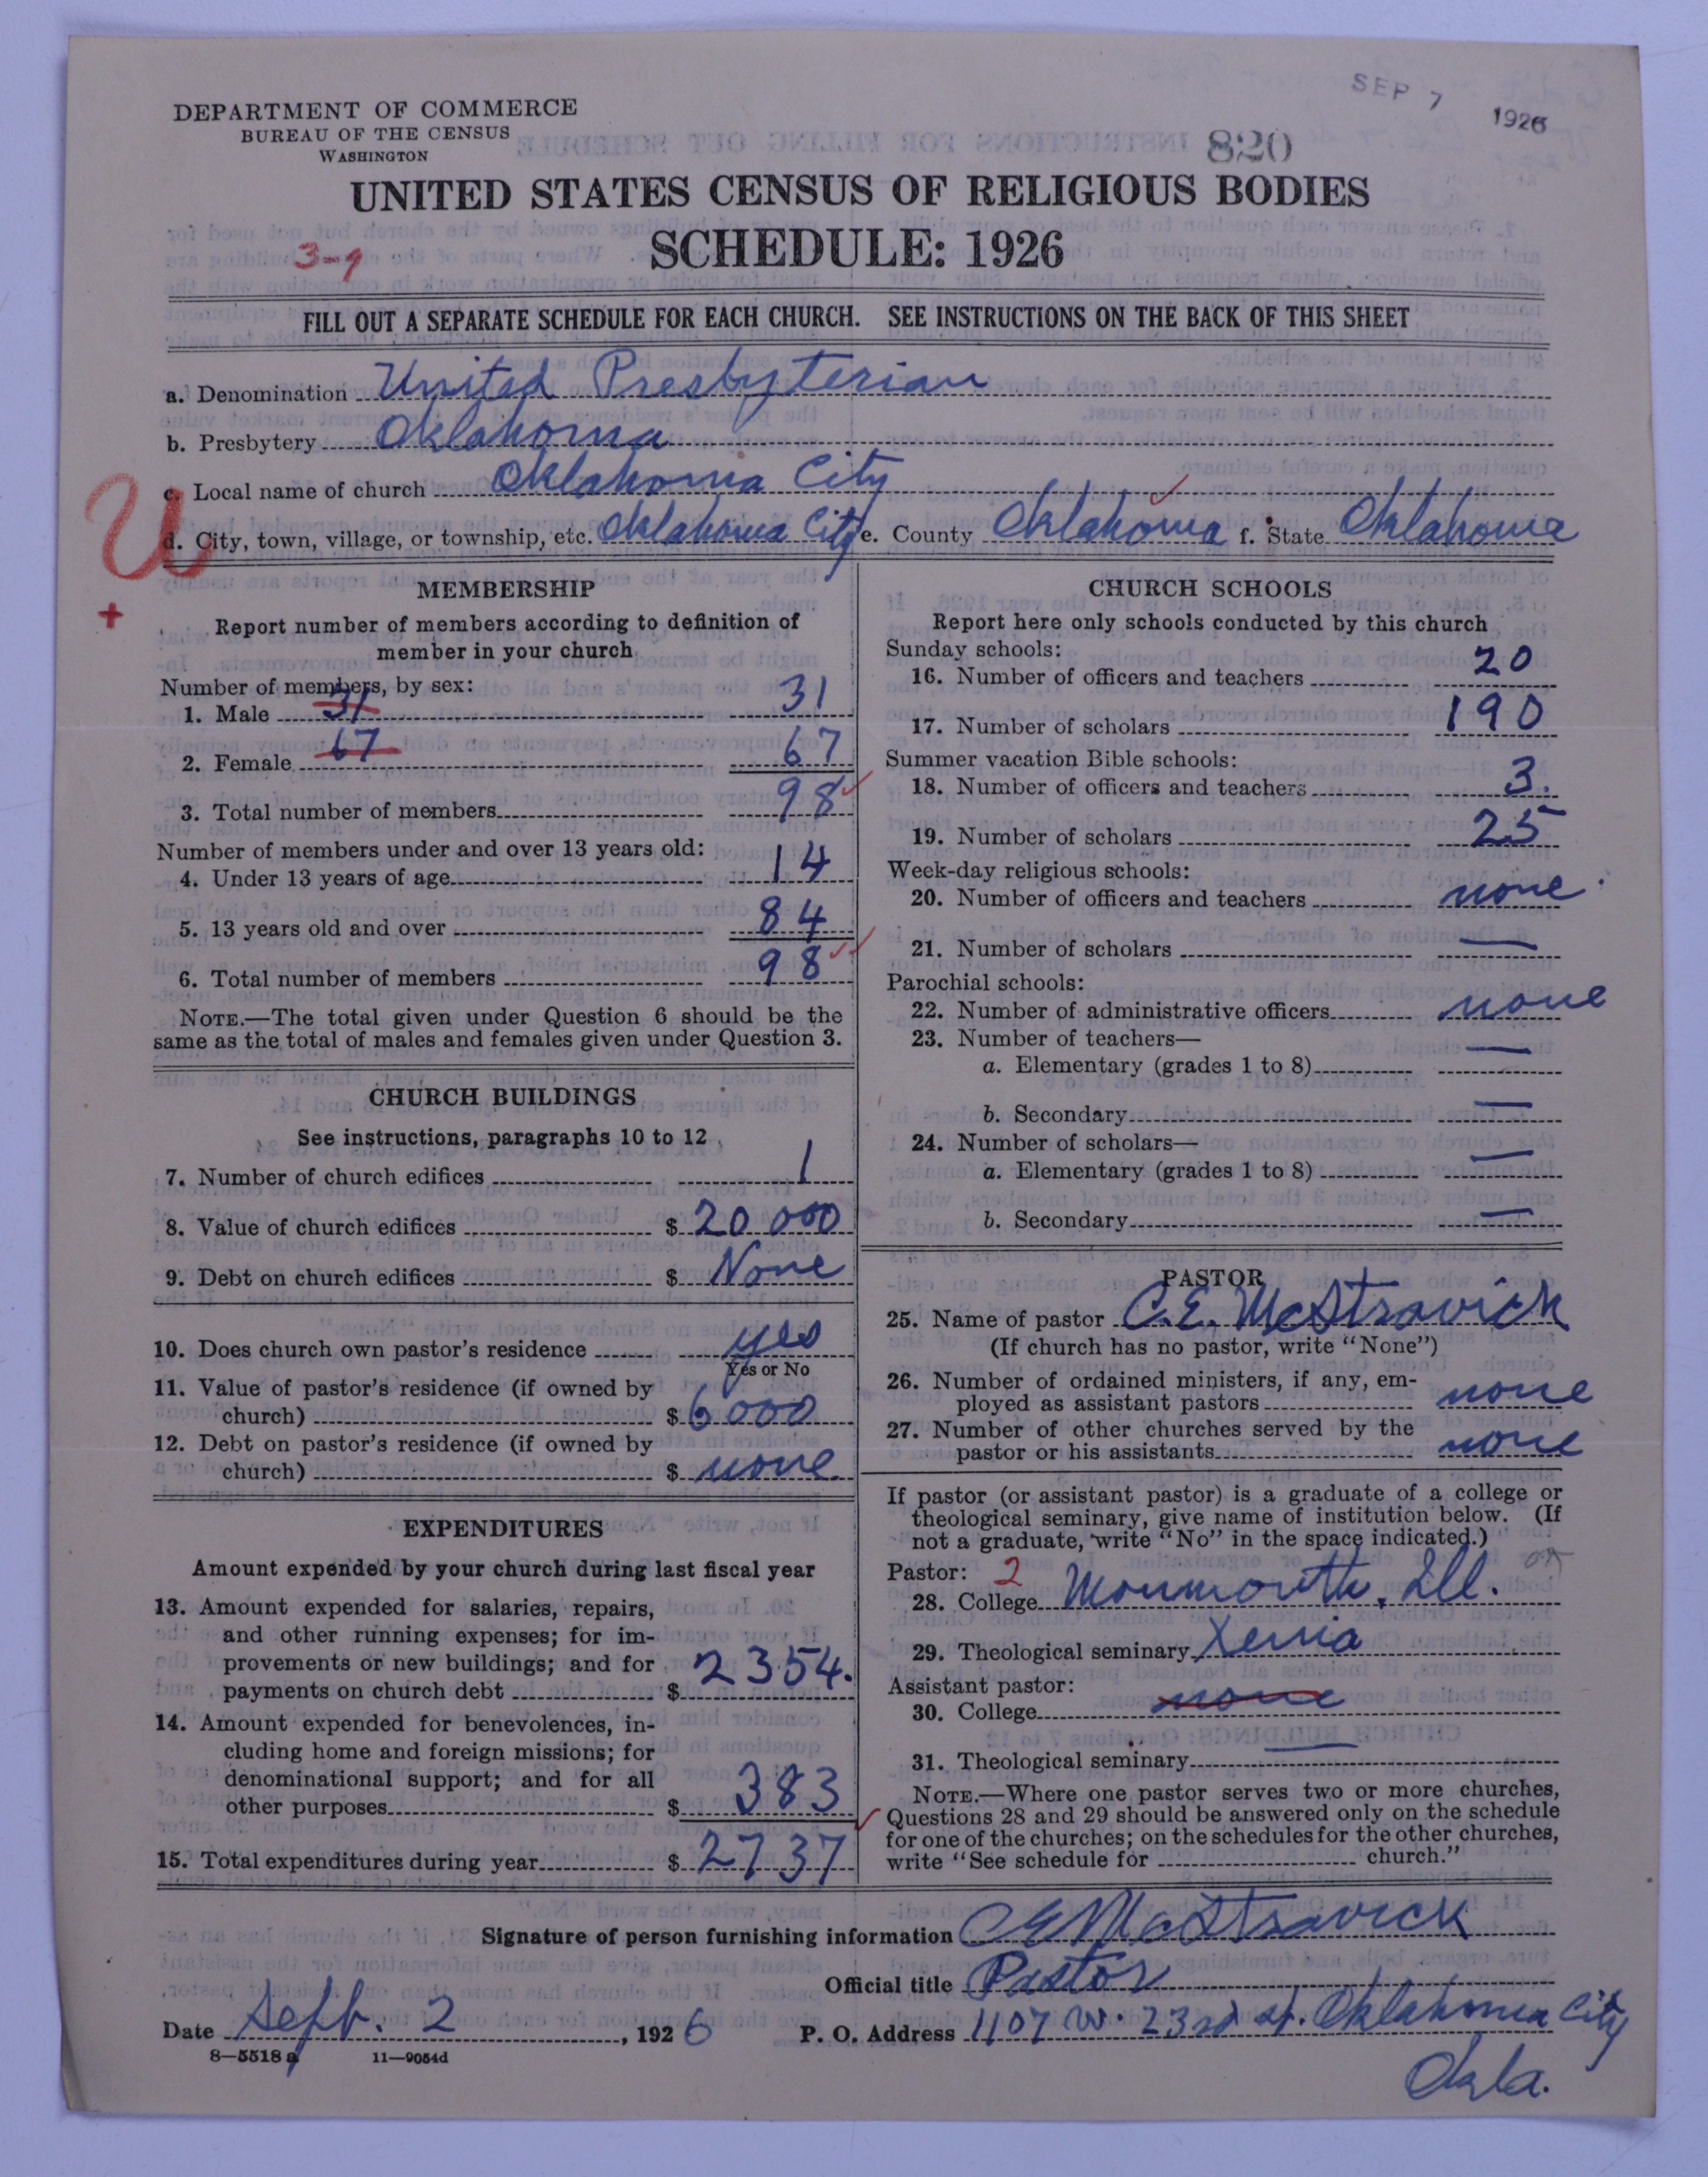 SEP 7 1926
DEPARTMENT OF COMMERCE
BUREAU OF THE CENSUS
WASHINGTON
820
UNITED STATES CENSUS OF RELIGIOUS BODIES
SCHEDULE: 1926
3-9
FILL OUT A SEPARATE SCHEDULE FOR EACH CHURCH. SEE INSTRUCTIONS ON THE BACK OF THIS SHEET
a. Denomination United Presbyterian
b. Presbytery Oklahoma
c. Local name of church Oklahoma City
U
d. City, town, village, or township, etc. Oklahoma City e. County Oklahoma f. State Oklahoma
+
MEMBERSHIP
Report number of members according to definition of
member in your church
Number of members, by sex:
1. Male 31 31
2. Female 67 67
3. Total number of members 98
Number of members under and over 13 years old:
4. Under 13 years of age 14
5. 13 years old and over 84
6. Total number of members 98
NOTE.—The total given under Question 6 should be the
same as the total of males and females given under Question 3.
CHURCH BUILDINGS
See instructions, paragraphs 10 to 12
7. Number of church edifices 1
8. Value of church edifices $ 20 000
9. Debt on church edifices $ None
10. Does church own pastor's residence yes
Yes or No
11. Value of pastor's residence (if owned by
church) $ 6000
12. Debt on pastor's residence (if owned by
church) $ none
EXPENDITURES
Amount expended by your church during last fiscal year
13. Amount expended for salaries, repairs,
and other running expenses; for im-
provements or new buildings; and for
payments on church debt $ 2354.
14. Amount expended for benevolences, in-
cluding home and foreign missions; for
denominational support; and for all
other purposes $ 383
15. Total expenditures during year $ 2737
CHURCH SCHOOLS
Report here only schools conducted by this church
Sunday schools:
16. Number of officers and teachers 20
17. Number of scholars 190
Summer vacation Bible schools:
18. Number of officers and teachers 3.
19. Number of scholars 25
Week-day religious schools:
20. Number of officers and teachers none
21. Number of scholars —
Parochial schools:
22. Number of administrative officers none
23. Number of teachers—
a. Elementary (grades 1 to 8) —
b. Secondary —
24. Number of scholars—
a. Elementary (grades 1 to 8) —
b. Secondary —
PASTOR
25. Name of pastor C.E. McStravick
(If church has no pastor, write "None")
26. Number of ordained ministers, if any, em-
ployed as assistant pastors none
27. Number of other churches served by the
pastor or his assistants none
If pastor (or assistant pastor) is a graduate of a college or
theological seminary, give name of institution below. (If
not a graduate, write "No" in the space indicated.)
Pastor: 2
28. College Monmouth, Ill. OK
29. Theological seminary Xenia
Assistant pastor:
30. College none
31. Theological seminary —
NOTE.—Where one pastor serves two or more churches,
Questions 28 and 29 should be answered only on the schedule
for one of the churches; on the schedules for the other churches,
write "See schedule for church."
Signature of person furnishing information CE McStravick
Official title Pastor
Date Sept. 2, 1926 P. O. Address 1107 W. 23rd st. Oklahoma City
Okla.
8—5518 a 11—9054d